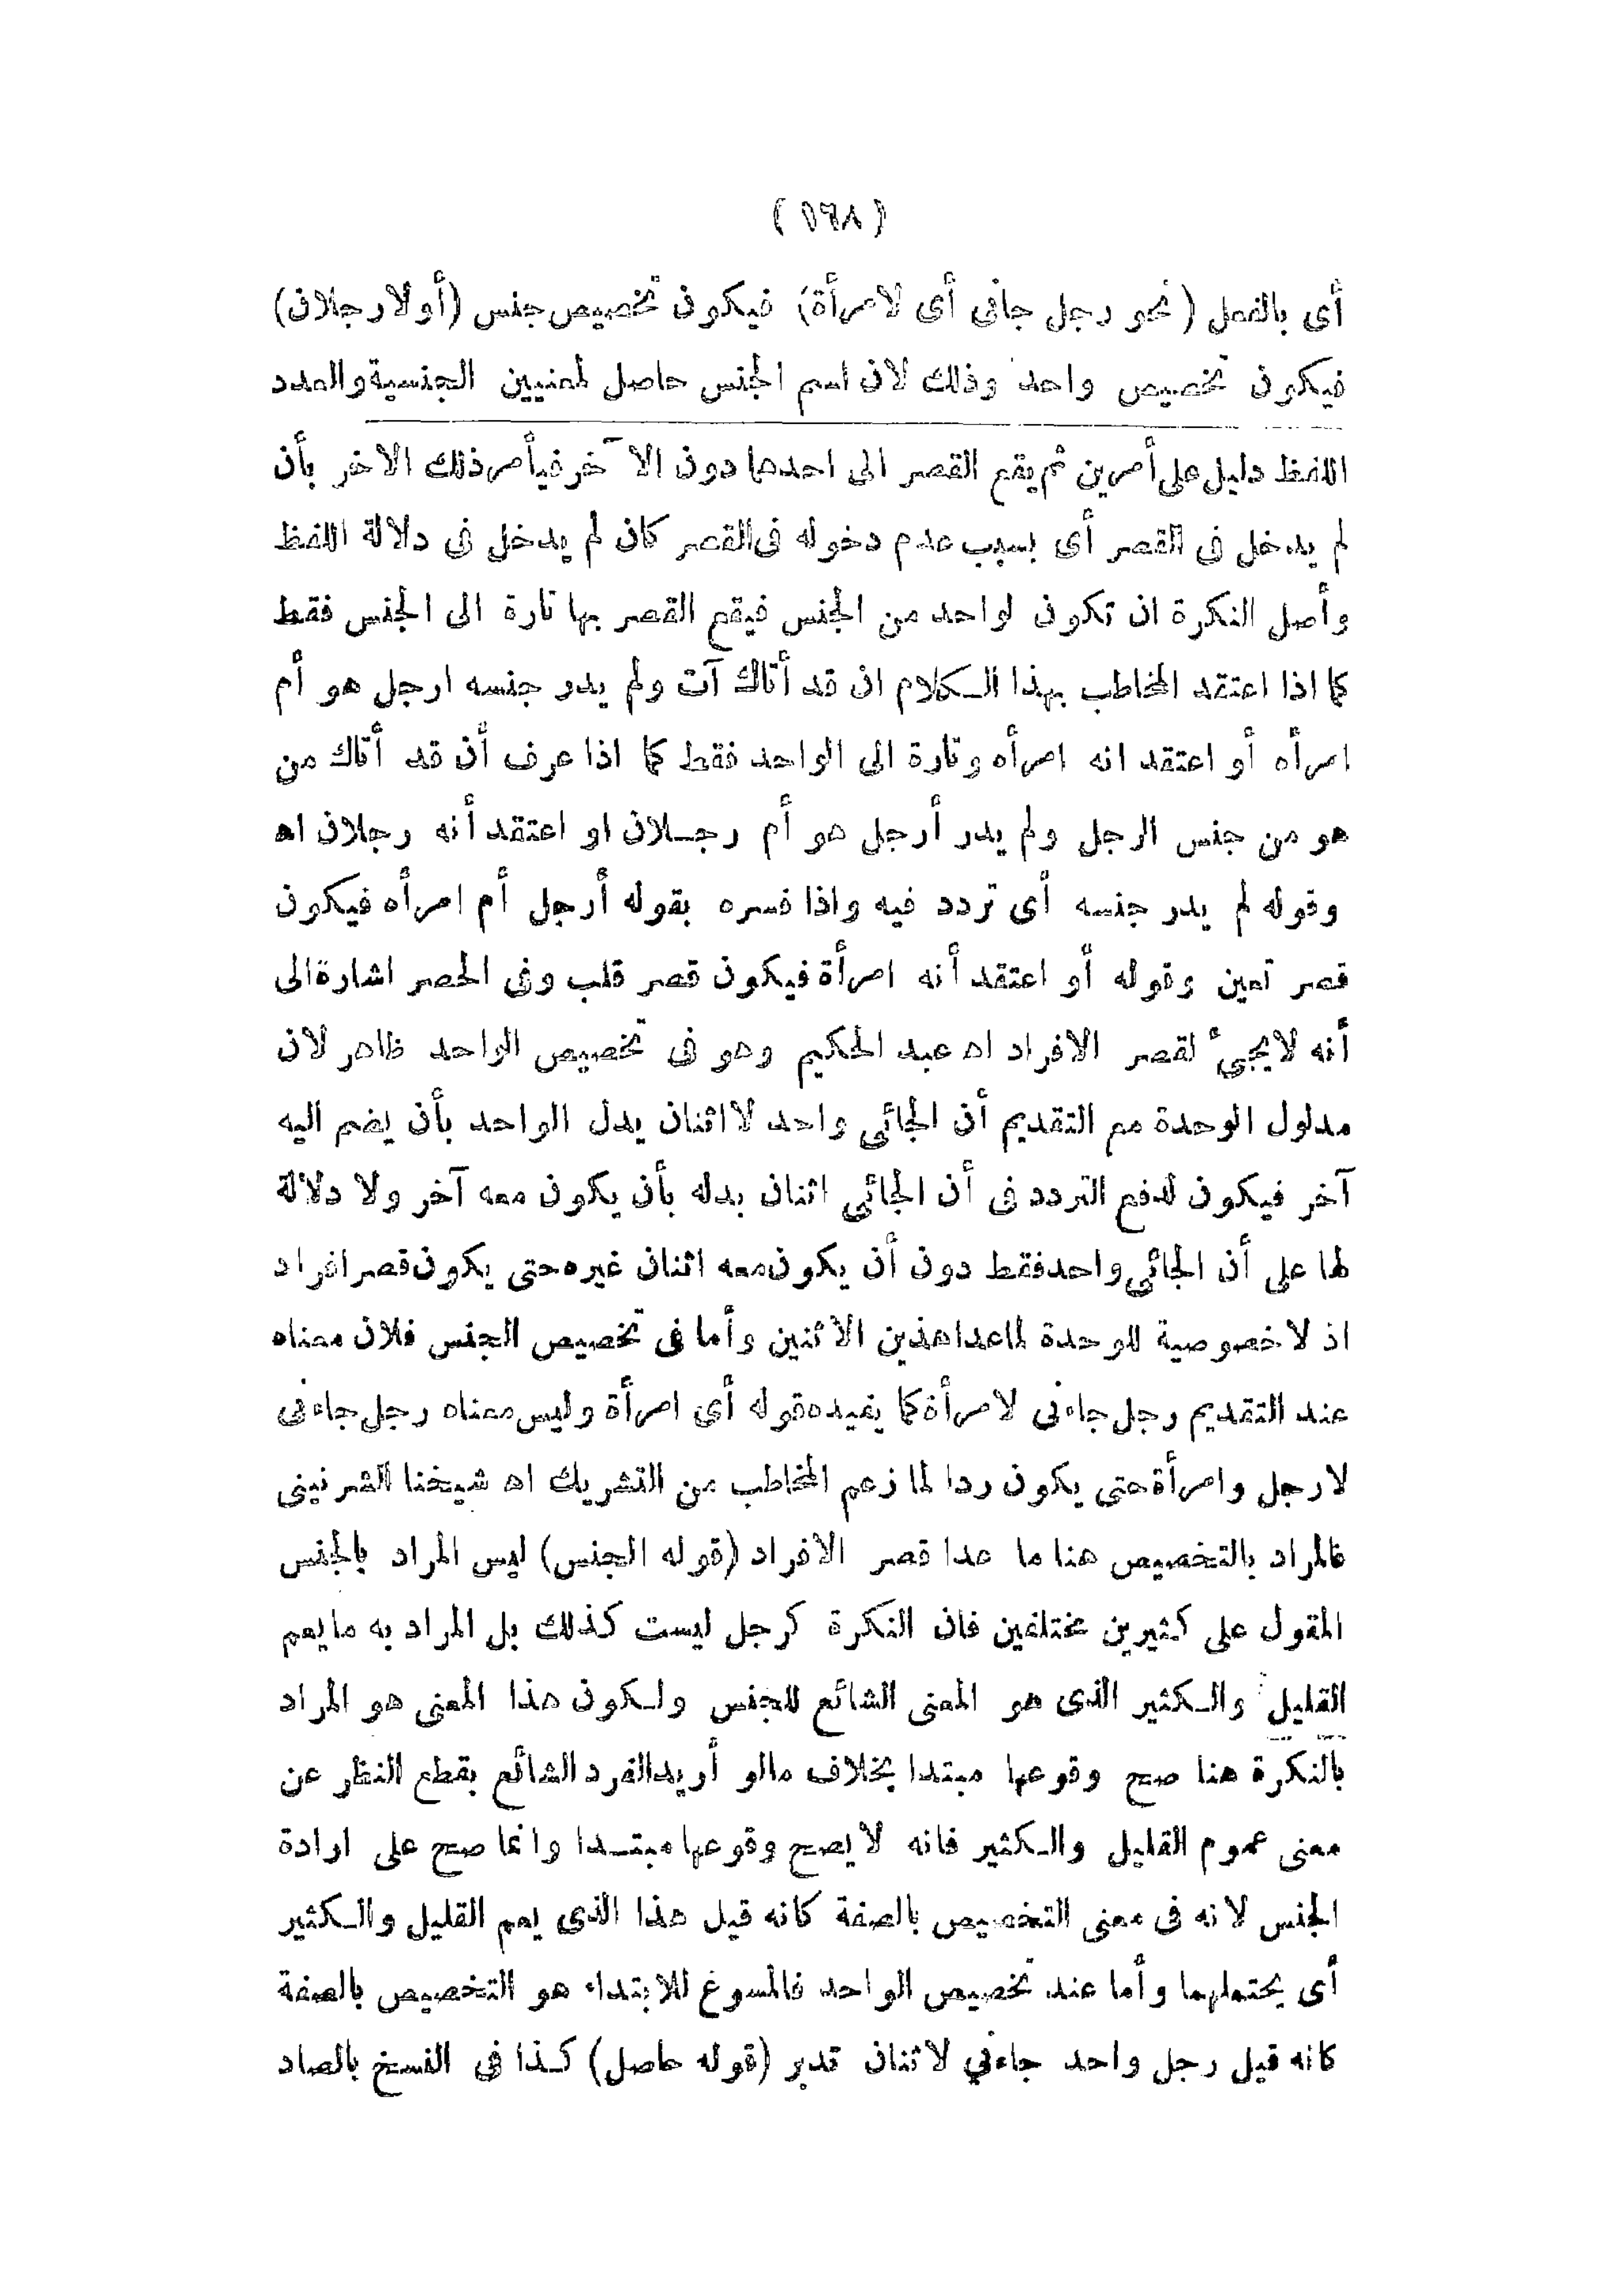 ( ١٦٨ )
أى بالفعل ( نحو رجل جانى أى لامرأة) فيكون تخصيص جنس (أولا رجلان)
فيكون تخصيص واحد وذلك لان اسم الجنس حاصل لمعنيين الجنسية والعدد
اللفظ دليل على أمرين ثم يقع القصر الى احدهما دون الآخر فيأمر ذلك الاخر بأن
لم يدخل فى القصر أى بسبب عدم دخوله فى القصر كان لم يدخل فى دلالة اللفظ
وأصل النكرة ان تكون لواحد من الجنس فيقع القصر بها تارة الى الجنس فقط
كما اذا اعتقد المخاطب بهذا الكلام ان قد أتاك آت ولم يدر جنسه ارجل هو أم
امرأه أو اعتقد انه امرأه وتارة الى الواحد فقط كما اذا عرف أن قد أتاك من
هو من جنس الرجل ولم يدر أرجل هو أم رجلان او اعتقد أنه رجلان اه
وقوله لم يدر جنسه أى تردد فيه واذا فسره بقوله أرجل أم امرأه فيكون
قصر تعين وقوله أو اعتقد أنه امرأة فيكون قصر قلب وفى الحصر اشارة الى
أنه لا يجئ لقصر الافراد اه عبد الحكيم وهو فى تخصيص الواحد ظاهر لان
مدلول الوحدة مع التقديم أن الجائى واحد لا اثنان يدل الواحد بأن يضم اليه
آخر فيكون لدفع التردد فى أن الجائى اثنان بدله بأن يكون معه آخر ولا دلالة
لها على أن الجائى واحد فقط دون أن يكون معه اثنان غيره حتى يكون قصر افراد
اذ لا خصوصية للوحدة لما عدا هذين الاثنين وأما فى تخصيص الجنس فلان معناه
عند التقديم رجل جاءنى لامرأة كما يفيده قوله أى امرأة وليس معناه رجل جاءنى
لا رجل وامرأة حتى يكون ردا لما زعم المخاطب من التشريك اه شيخنا الشرنينى
فالمراد بالتخصيص هنا ما عدا قصر الافراد (قوله الجنس) ليس المراد بالجنس
المقول على كثيرين مختلفين فان النكرة كرجل ليست كذلك بل المراد به ما يعم
القليل والكثير الذى هو المعنى الشائع للجنس ولكون هذا المعنى هو المراد
بالنكرة هنا صح وقوعها مبتدا بخلاف مالو أريد الفرد الشائع بقطع النظر عن
معنى عموم القليل والكثير فانه لا يصح وقوعها مبتدا وانما صح على ارادة
الجنس لانه فى معنى التخصيص بالصفة كانه قيل هذا الذى يعم القليل والكثير
أى يحتملهما وأما عند تخصيص الواحد فالمسوغ للابتداء هو التخصيص بالصفة
كانه قيل رجل واحد جاءنى لا ثنان تدبر (قوله حاصل) كذا فى النسخ بالصاد